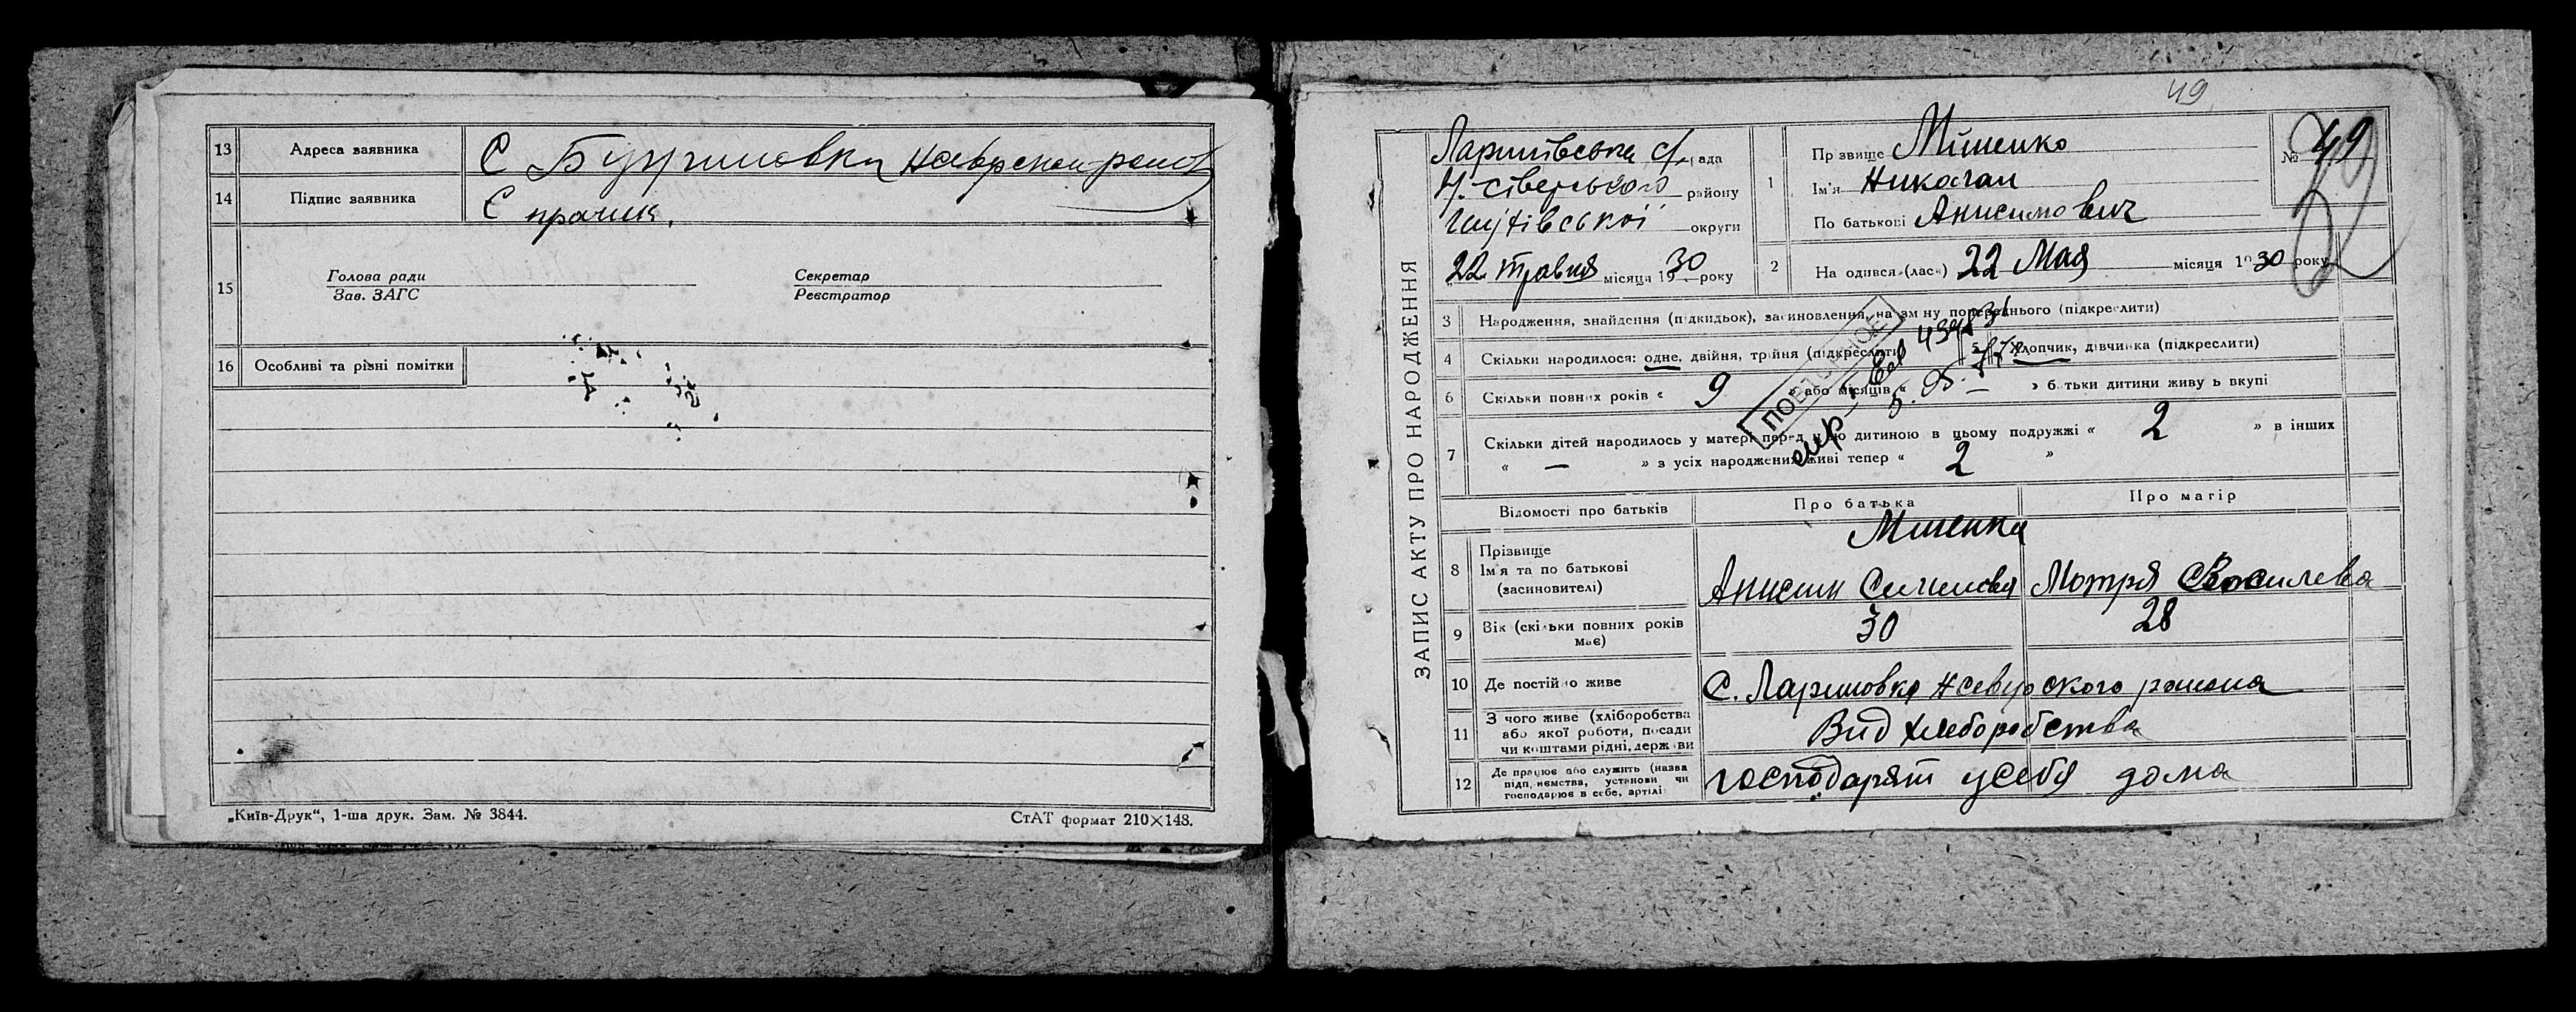 13 Адреса заявника С
14 Підпис заявника С
15 Голова ради Секретар
Зав. ЗАГС Реєстратор
16 Особливі та різні помітки
„Київ-Друк“, 1-ша друк. Зам. № 3844. СтАТ формат 210×148.
49
ЗАПИС АКТУ ПРО НАРОДЖЕННЯ
рада
Н.-Сіверського району
округи
22 травня місяця 1930 року
1 Прізвище Мишенко
Ім'я Николай
По батькові Анисимович
№ 49
2 Народився (лась) 22 Мая місяця 1930 року
3 Народження, знайдення (підкидьок), засиновлення, на зміну попереднього (підкреслити)
4 Скільки народилося: одне, двійня, тройня (підкреслити)
5 Хлопчик, дівчинка (підкреслити)
ПОВТОРНОЕ
6 Скільки повних років « 9 » або місяців « — » батьки дитини живуть вкупі
7 Скільки дітей народилось у матері перед цією дитиною в цьому подружжі « 2 » в інших
« — » з усіх народжених живі тепер « 2 »
Відомості про батьків Про батька Про матір
8 Прізвище
Ім'я та по батькові
(засиновителі)
Мотря Василева
9 Вік (скільки повних років має) 30 28
10 Де постійно живе С. Лариновка района
11 З чого живе (хліборобства
або якої роботи, посади
чи коштами рідні, держави
Вид хлеборобства
12 Де працює або служить (назва
підприємства, установи чи
господарює в себе, артілі
господарят у себя дома